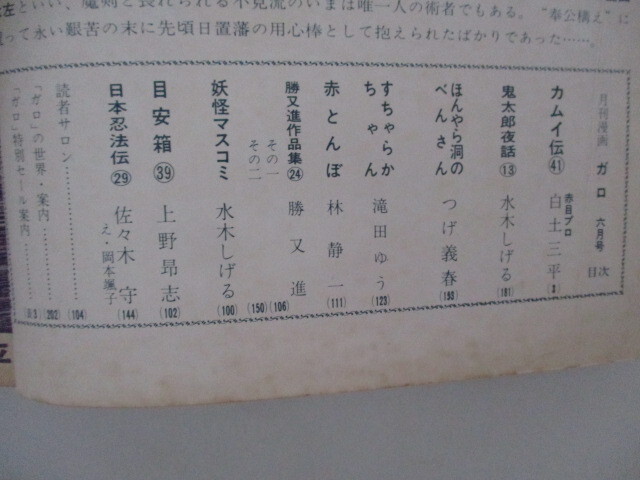 左といい、魔剣と畏れられる不見流のいまは唯一人の術者でもある。“奉公構え”に
って永い艱苦の末に先頃日置藩の用心棒として抱えられたばかりであった……。
月刊漫画 ガロ 六月号 目次
カムイ伝㊶ 赤目プロ 白土三平 (3)
鬼太郎夜話⑬ 水木しげる (181)
ほんやら洞のべんさん つげ義春 (193)
すちゃらかちゃん 滝田ゆう (123)
赤とんぼ 林静一 (111)
勝又進作品集㉔ 勝又進
その一 (106)
その二 (150)
妖怪マスコミ 水木しげる (100)
目安箱㊴ 上野昂志 (102)
日本忍法伝㉙ 佐々木守 え・岡本颯子 (144)
読者サロン (104)
「ガロ」の世界・案内 (202)
「ガロ」特別セール案内